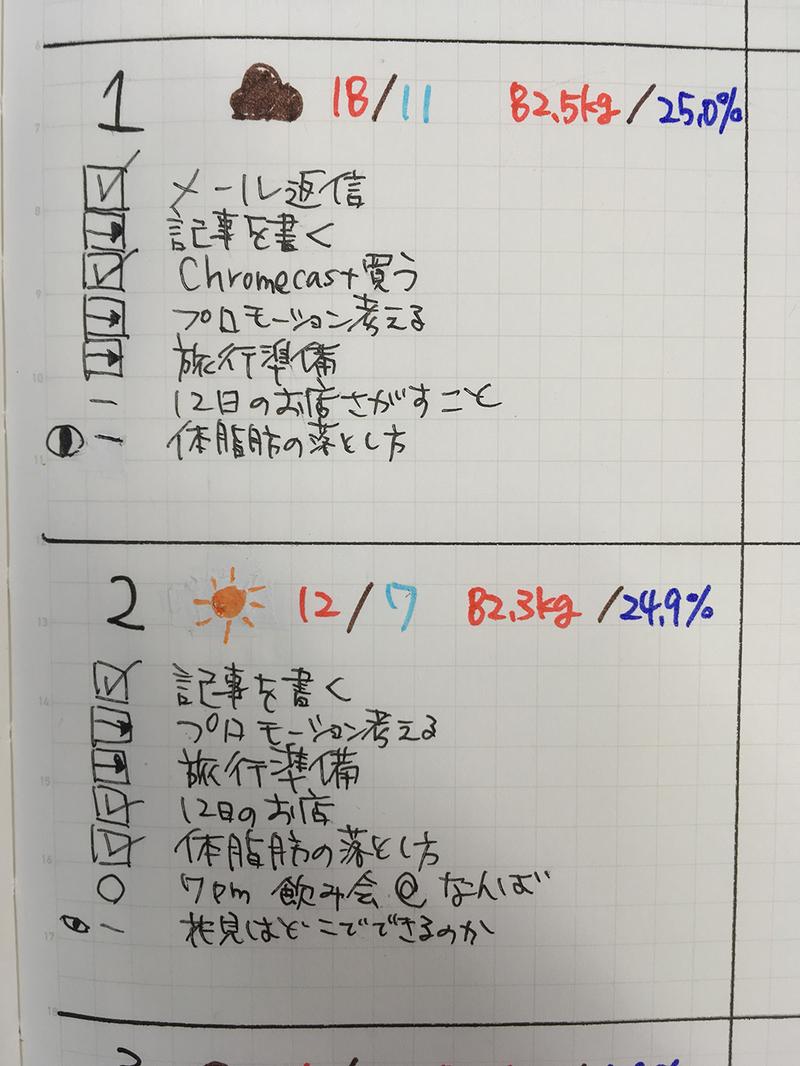 6
1 18/11 82.5kg/25.0%
7
メール返信
8
記事を書く
Chromecast買う
9
プロモーション考える
旅行準備
10
12日のお店さがすこと
体脂肪の落とし方
11
2 12/7 82.3kg/24.9%
13
記事を書く
14
プロモーション考える
旅行準備
15
12日のお店
体脂肪の落とし方
16
7pm 飲み会@なんば
花見はどこでできるのか
17
18